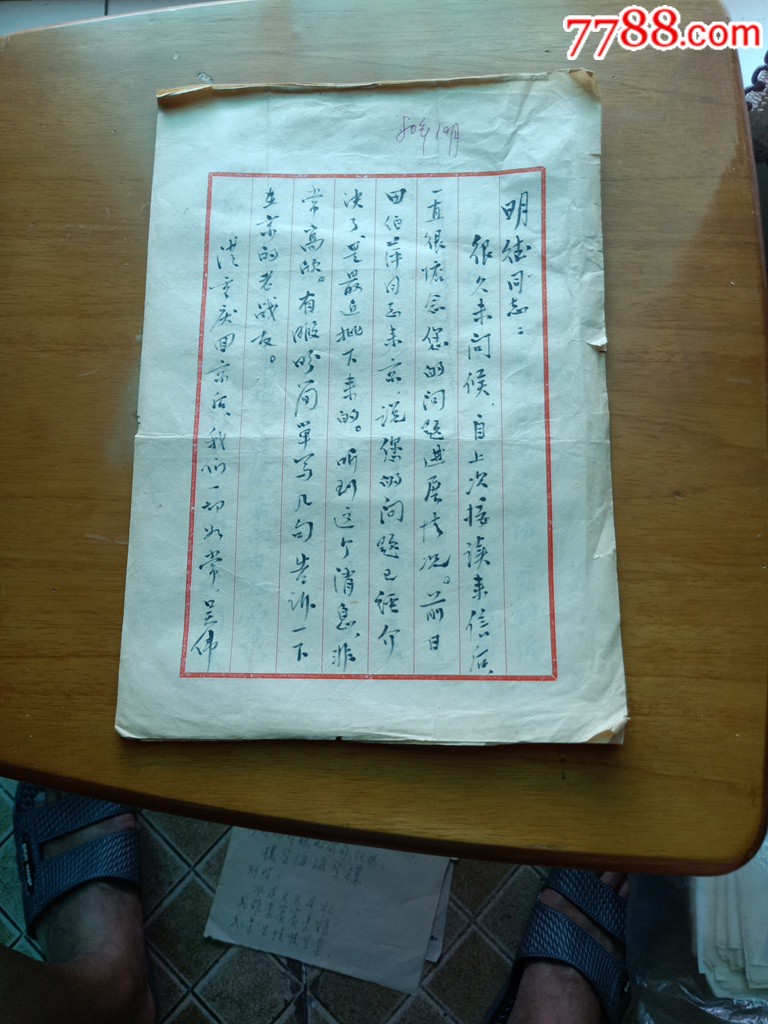 7788.com
80年10月
明德同志：
很久未问候，自上次接读来信后，
一直很惦念您的问题进展情况。前日
田伯萍同志来京，说您的问题已经介
决了，是最近批下来的。听到这个消息，非
常高兴。有暇盼简单写几句告诉一下
在京的老战友。
从重庆回京后，我们一切如常，吴伟